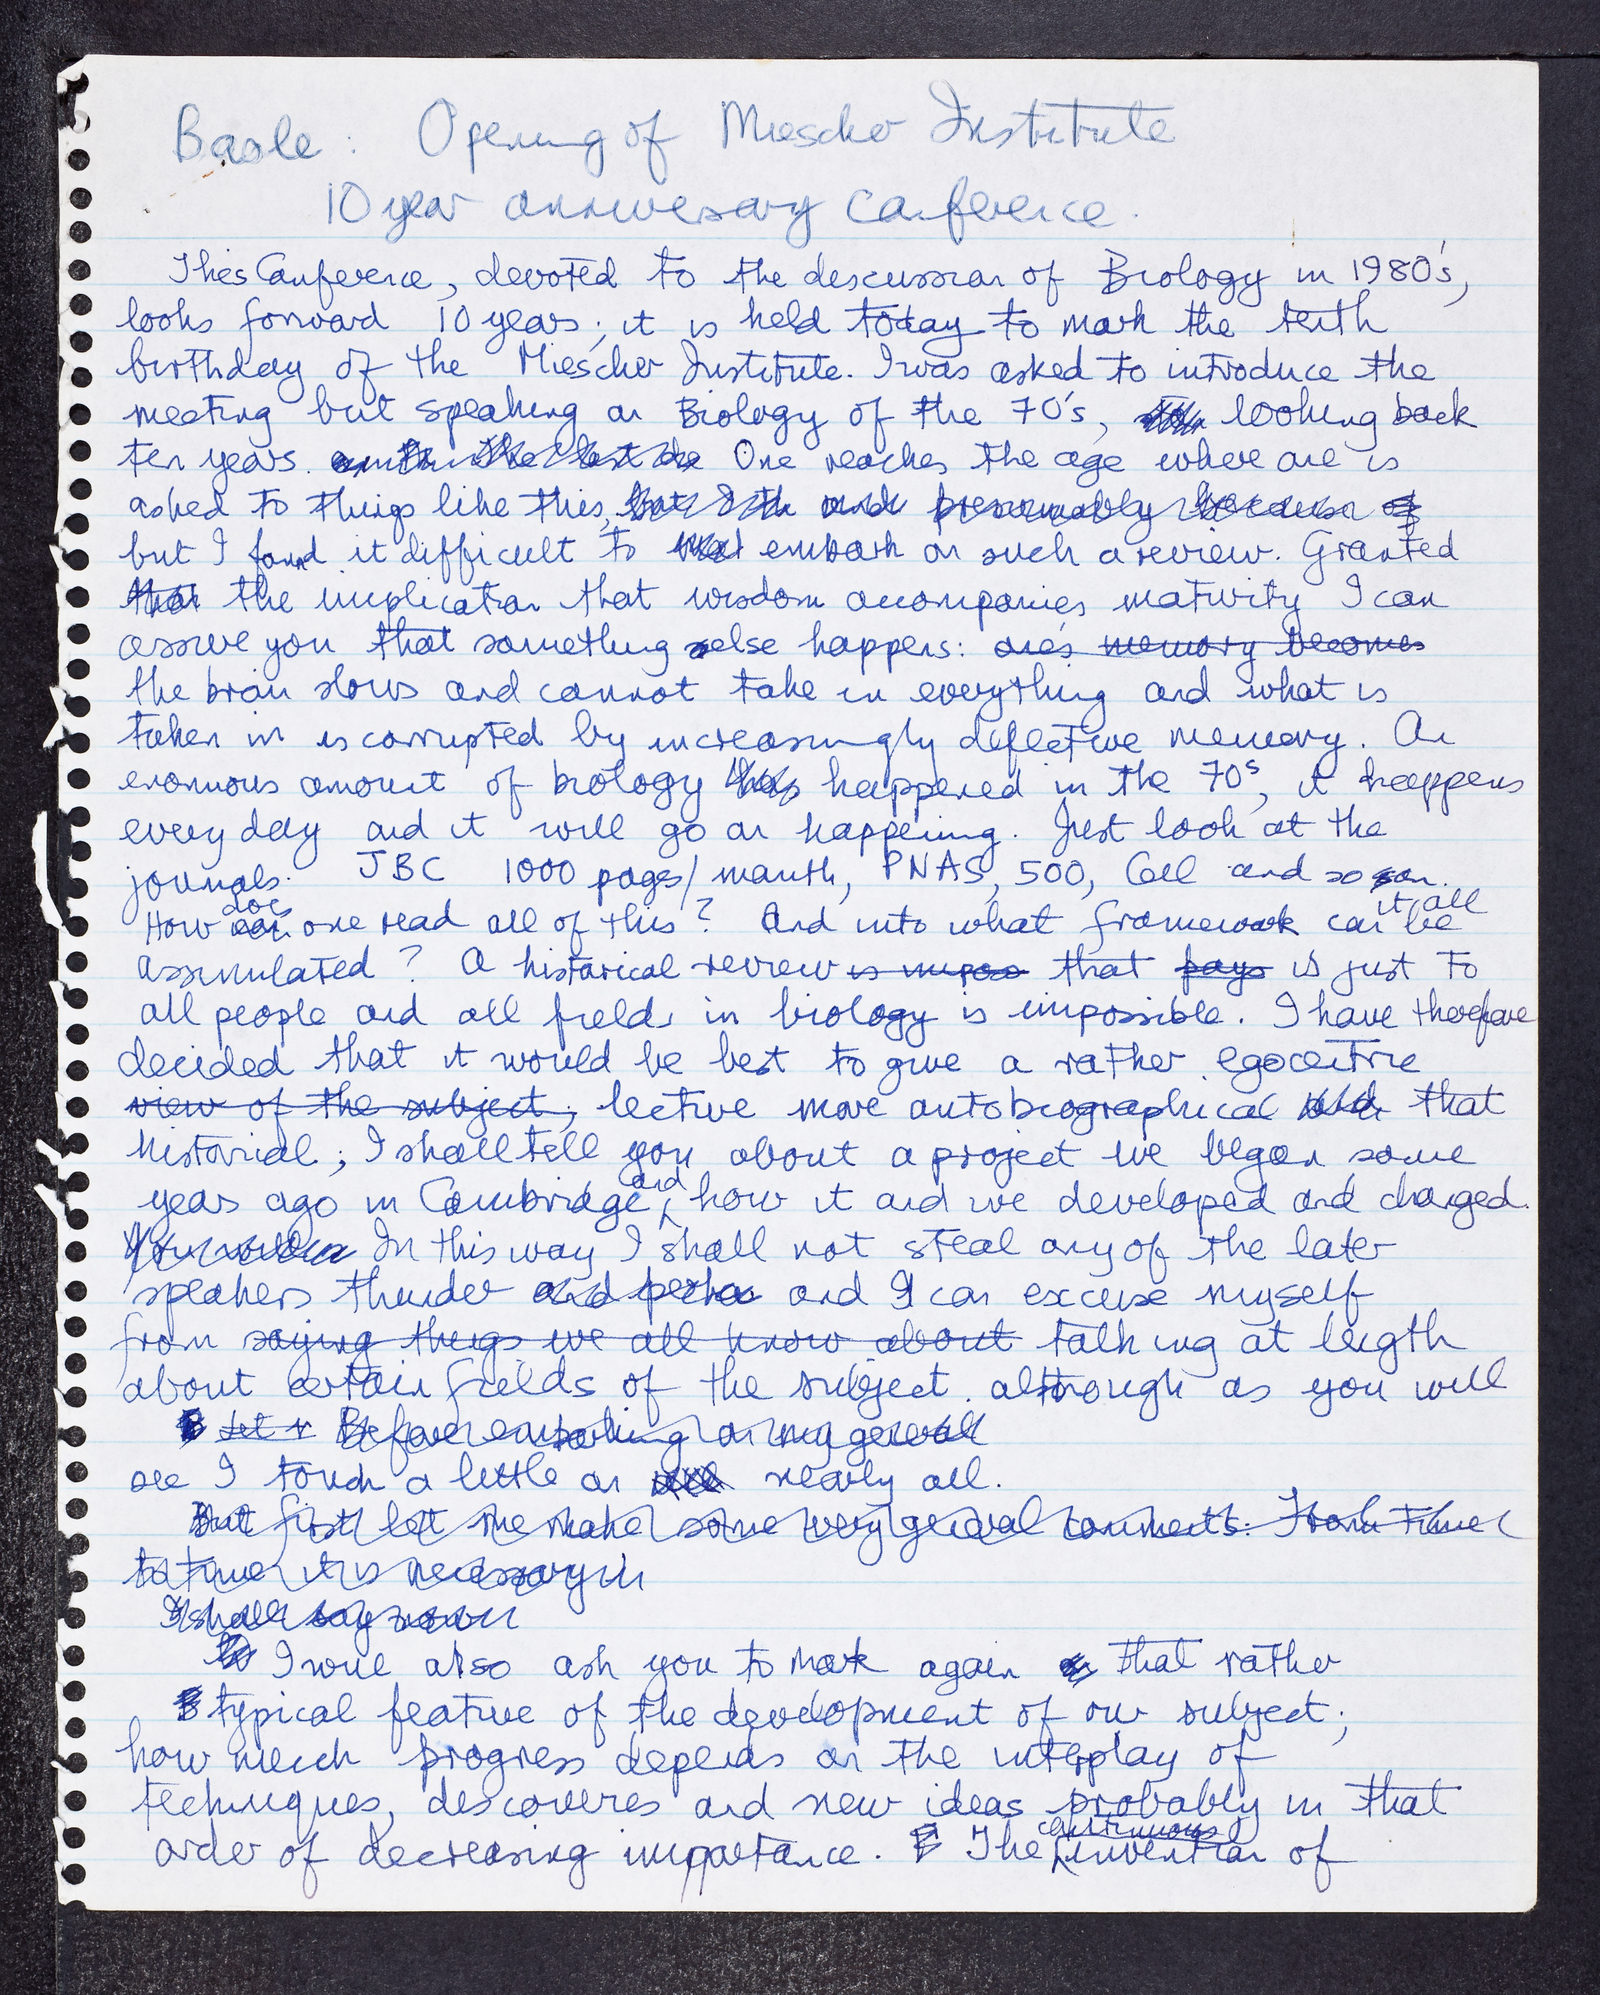 Basle: Opening of Miescher Institute
10 year anniversary Conference.
This Conference, devoted to the discussion of Biology in 1980's,
looks forward 10 years; it is held today to mark the tenth
birthday of the Miescher Institute. I was asked to introduce the
meeting but speaking on Biology of the 70's, looking back
ten years. One reaches the age where one is
asked to things like this, presumably because
but I found it difficult to embark on such a review. Granted
that the implication that wisdom accompanies maturity I can
assure you that something else happens: one's memory becomes
the brain slows and cannot take in everything and what is
taken in is corrupted by increasingly defective memory. An
enormous amount of biology has happened in the 70s, it happens
every day and it will go on happening. Just look at the
journals. JBC 1000 pages/month, PNAS, 500, Cell and so on.
How does one read all of this? And into what framework can it all be
assimulated? A historical review is impos that pays is just to
all people and all fields in biology is impossible. I have therefore
decided that it would be best to give a rather egocentric
view of the subject; lective more autobiographical that
historical; I shall tell you about a project we began some
years ago in Cambridge, and how it and we developed and changed.
In this way I shall not steal any of the later
speakers thunder and perhaps and I can excuse myself
from saying things we all know about talking at length
about certain fields of the subject. although as you will
B let u Before embarking on my general
see I touch a little on all nearly all.
But first let me make some very general comments. From time
to time it is necessary in
I shall say
I will also ask you to mark again that rather
typical feature of the development of our subject;
how much progress depends on the interplay of
techniques, discoveries and new ideas probably in that
order of decreasing importance. The continuous invention of